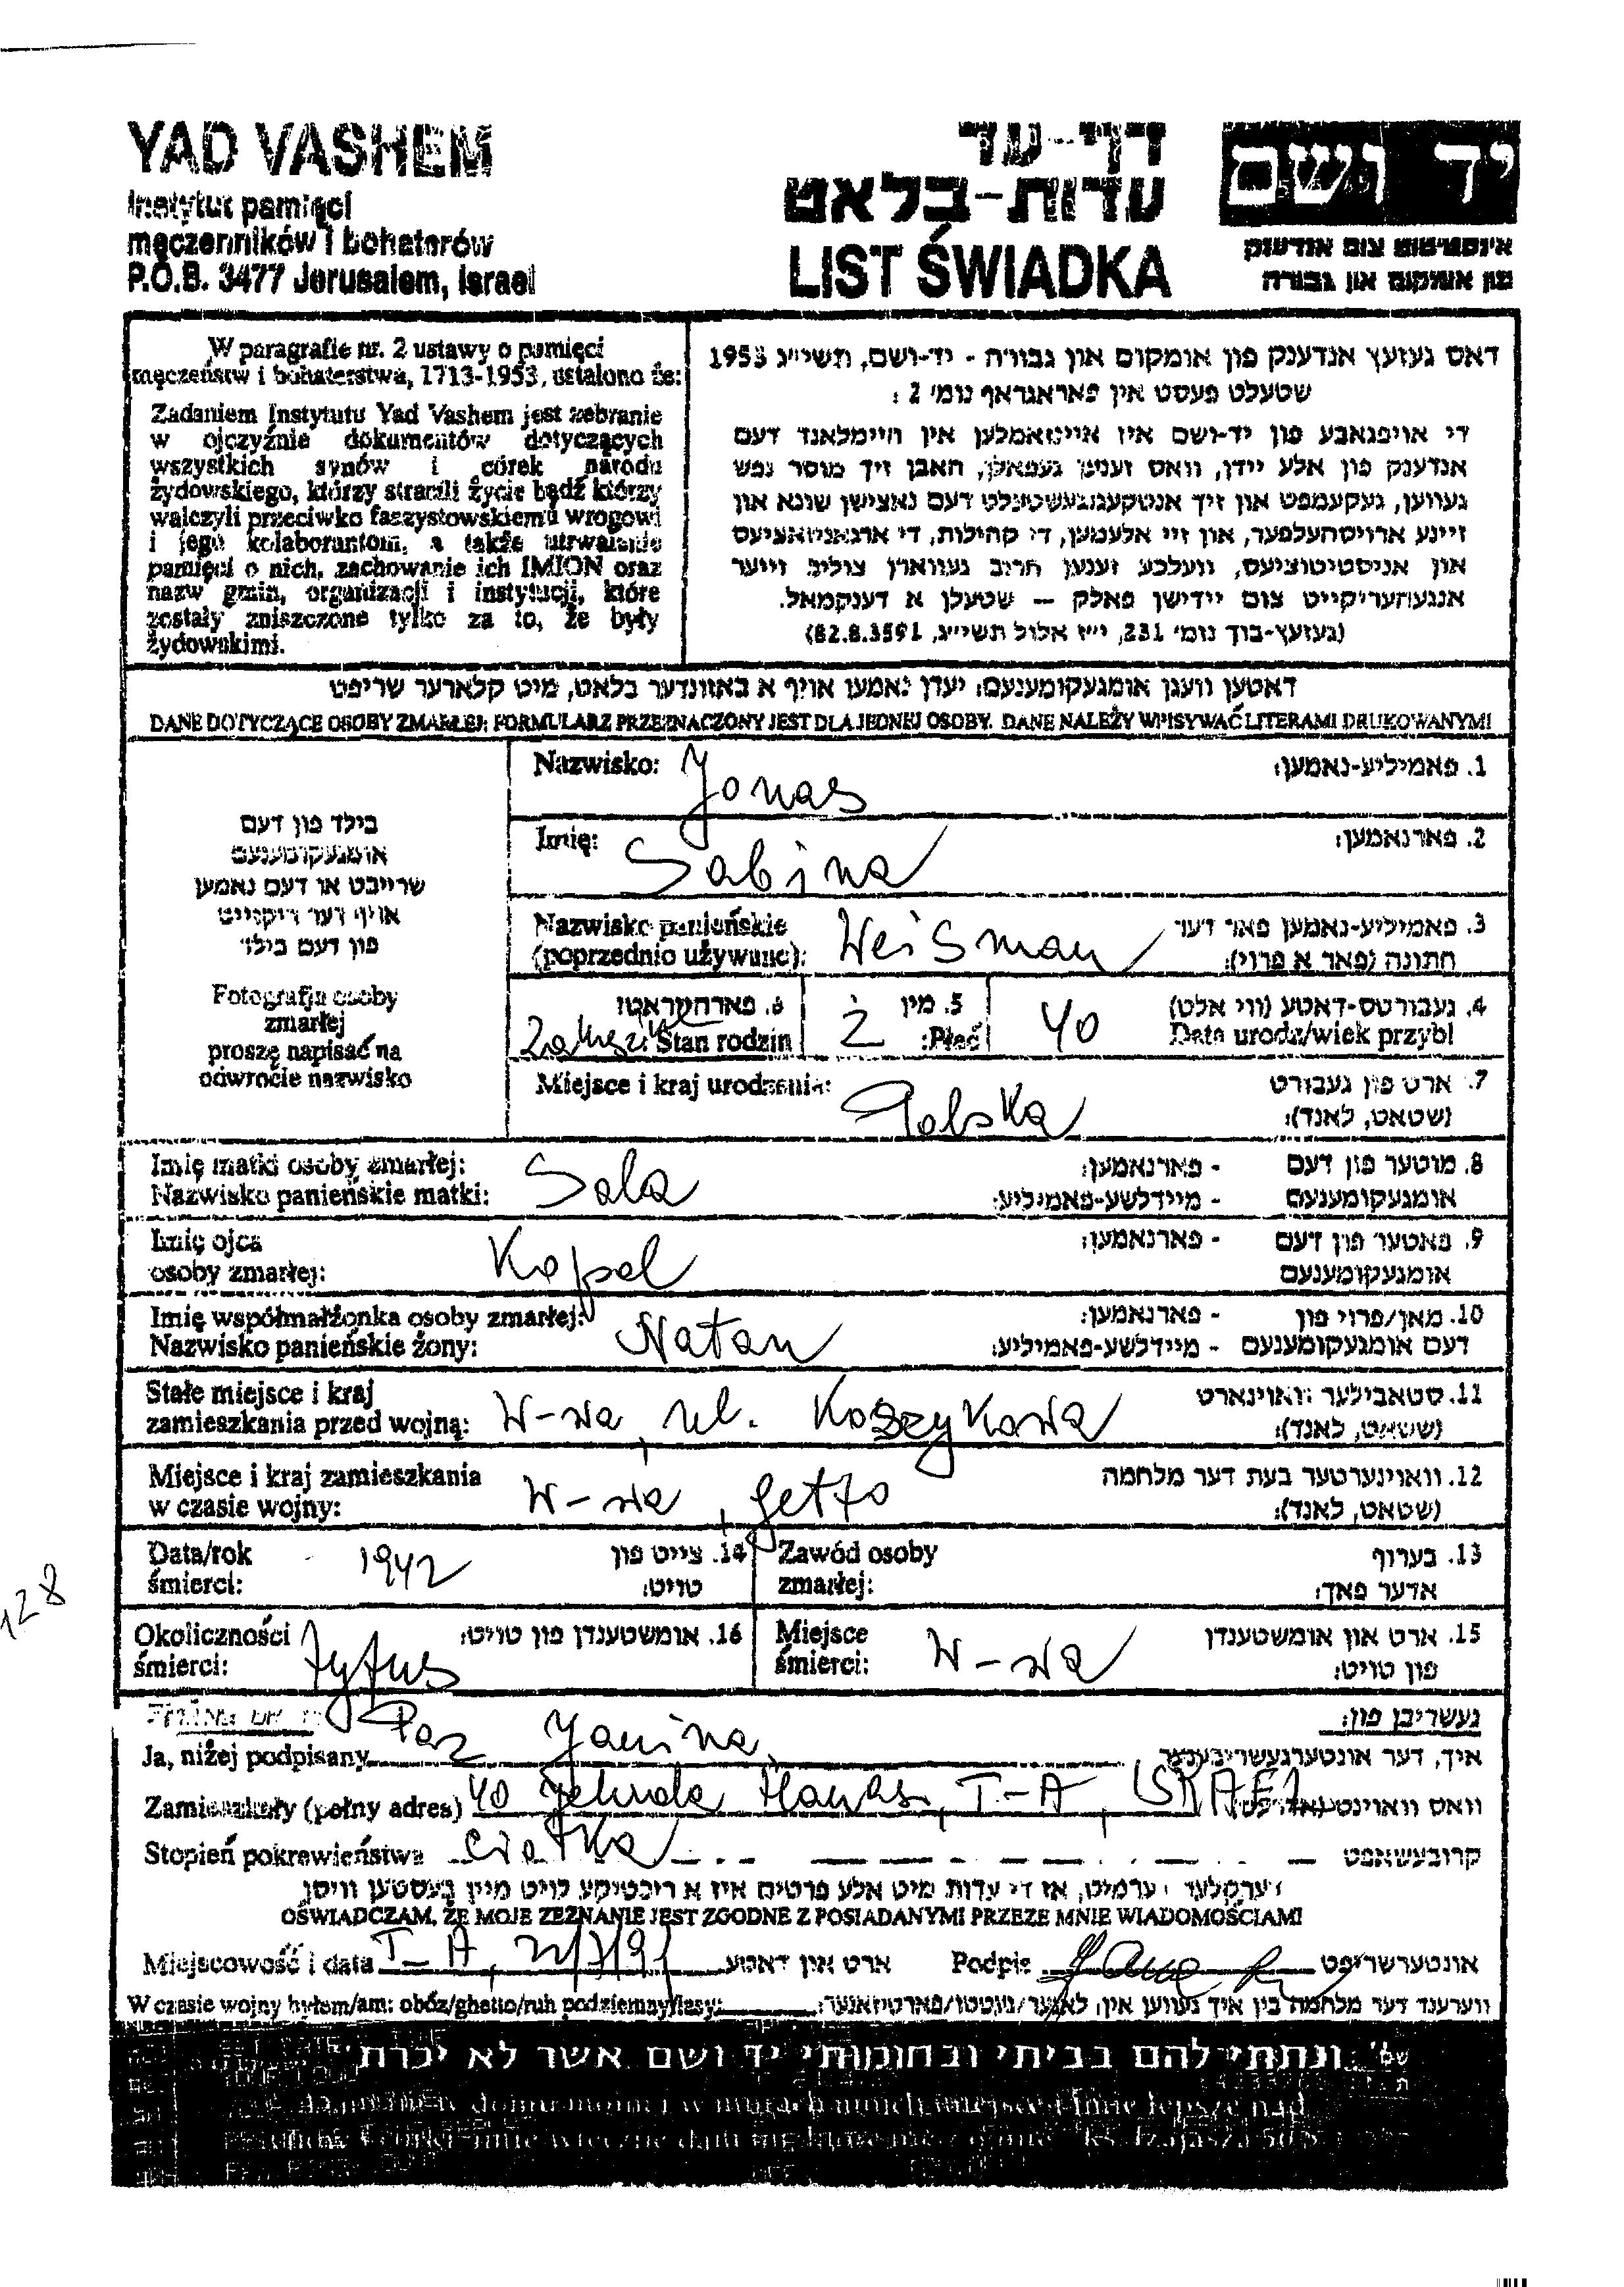 YAD VASHEM
Instytut pamięci
męczenników i bohaterów
P.O.B. 3477 Jerusalem, Israel
דף-עד
עדות-בלאט
LIST ŚWIADKA
יד ושם
אינסטיטוט צום אנדענק
פון אומקום און גבורה
W paragrafie nr. 2 ustawy o pamięci
męczeństw i bohaterstwa, 1713-1953, ustalono że:
Zadaniem Instytutu Yad Vashem jest zebranie
w ojczyźnie dokumentów dotyczących
wszystkich synów i córek narodu
żydowskiego, którzy stracili życie bądź którzy
walczyli przeciwko faszystowskiemu wrogowi
i jego kolaborantom, a także utrwalenie
pamięci o nich, zachowanie ich IMION oraz
nazw gmin, organizacji i instytucji, które
zostały zniszczone tylko za to, że były
żydowskimi.
דאס געזעץ אנדענק פון אומקום און גבורה - יד-ושם, תשי״ג 1953
שטעלט פעסט אין פאראגראף נומ׳ 2 :
די אויפגאבע פון יד-ושם איז איינזאמלען אין היימלאנד דעם
אנדענק פון אלע יידן, וואס זענען געפאלן, האבן זיך מוסר נפש
געווען, געקעמפט און זיך אנטקעגנגעשטעלט דעם נאצישן שונא און
זיינע ארויסהעלפער, און זיי אלעמען, די קהילות, די ארגאניזאציעס
און אינסטיטוציעס, וועלכע זענען חרוב געווארן צוליב זייער
אנגעהעריקייט צום יידישן פאלק – שטעלן א דענקמאל.
(געזעץ-בוך נומ׳ 231, י״ז אלול תשי״ג, 82.8.3591)
דאטען וועגן אומגעקומענעם: יעדן נאמען אויף א באזונדער בלאט, מיט קלארער שריפט
DANE DOTYCZĄCE OSOBY ZMARŁEJ: FORMULARZ PRZEZNACZONY JEST DLA JEDNEJ OSOBY. DANE NALEŻY WPISYWAĆ LITERAMI DRUKOWANYMI
בילד פון דעם
אומגעקומענעם
שרייבט אן דעם נאמען
אויף דער ריקזייט
פון דעם בילד
Fotografja osoby
zmarłej
proszę napisać na
odwrocie nazwisko
Nazwisko: Jonas 1. פאמיליע-נאמען:
Imię: Sabina 2. פארנאמען:
Nazwisko panieńskie Weisman 3. פאמיליע-נאמען פאר דער
(poprzednio używane): חתונה (פאר א פרוי):
6. פארהייראט: 5. מין 4. געבורטס-דאטע (ווי אלט)
Stan rodzin Ż Płeć: 40 Data urodz/wiek przybl
Miejsce i kraj urodzenia: Polska 7. ארט פון געבורט
(שטאט, לאנד):
Imię matki osoby zmarłej: Sala - פארנאמען: 8. מוטער פון דעם
Nazwisko panieńskie matki: - מיידלשע-פאמיליע: אומגעקומענעם
Imię ojca Kopel - פארנאמען: 9. פאטער פון דעם
osoby zmarłej: אומגעקומענעם
Imię współmałżonka osoby zmarłej: Natan - פארנאמען: 10. מאן/פרוי פון
Nazwisko panieńskie żony: - מיידלשע-פאמיליע: דעם אומגעקומענעם
Stałe miejsce i kraj 11. סטאבילער וואוינארט
zamieszkania przed wojną: W-wa, ul. Koszykowa (שטאט, לאנד):
Miejsce i kraj zamieszkania 12. וואוינערטער בעת דער מלחמה
w czasie wojny: W-wa, getto (שטאט, לאנד):
Data/rok 1942 14. צייט פון Zawód osoby 13. בערוף
śmierci: טויט: zmarłej: אדער פאך:
128
Okoliczności tyfus 16. אומשטענדן פון טויט: Miejsce W-wa 15. ארט און אומשטענדן
śmierci: śmierci: פון טויט:
געשריבן פון:
Ja, niżej podpisany Paz Janina איך, דער אונטערגעשריבענער
Zamieszkały (pełny adres) 40 Jehuda Hanasi, T-A, ISRAEL
Stopień pokrewieństwa ciotka קרובעשאפט
דערקלער דערמיט, אז די עדות מיט אלע פרטים איז א ריכטיקע לויט מיין בעסטען וויסן
OŚWIADCZAM, ŻE MOJE ZEZNANIE JEST ZGODNE Z POSIADANYMI PRZEZE MNIE WIADOMOŚCIAMI
Miejscowość i data T-A, ארט און דאטע Podpis אונטערשריפט
W czasie wojny byłem/am: obóz/ghetto/ruh podziemny/lasy: ווערענד דער מלחמה בין איך געווען אין: לאגער/געטטו/פארטיזאנער:
ונתתי להם בביתי ובחומותי יד ושם אשר לא יכרת